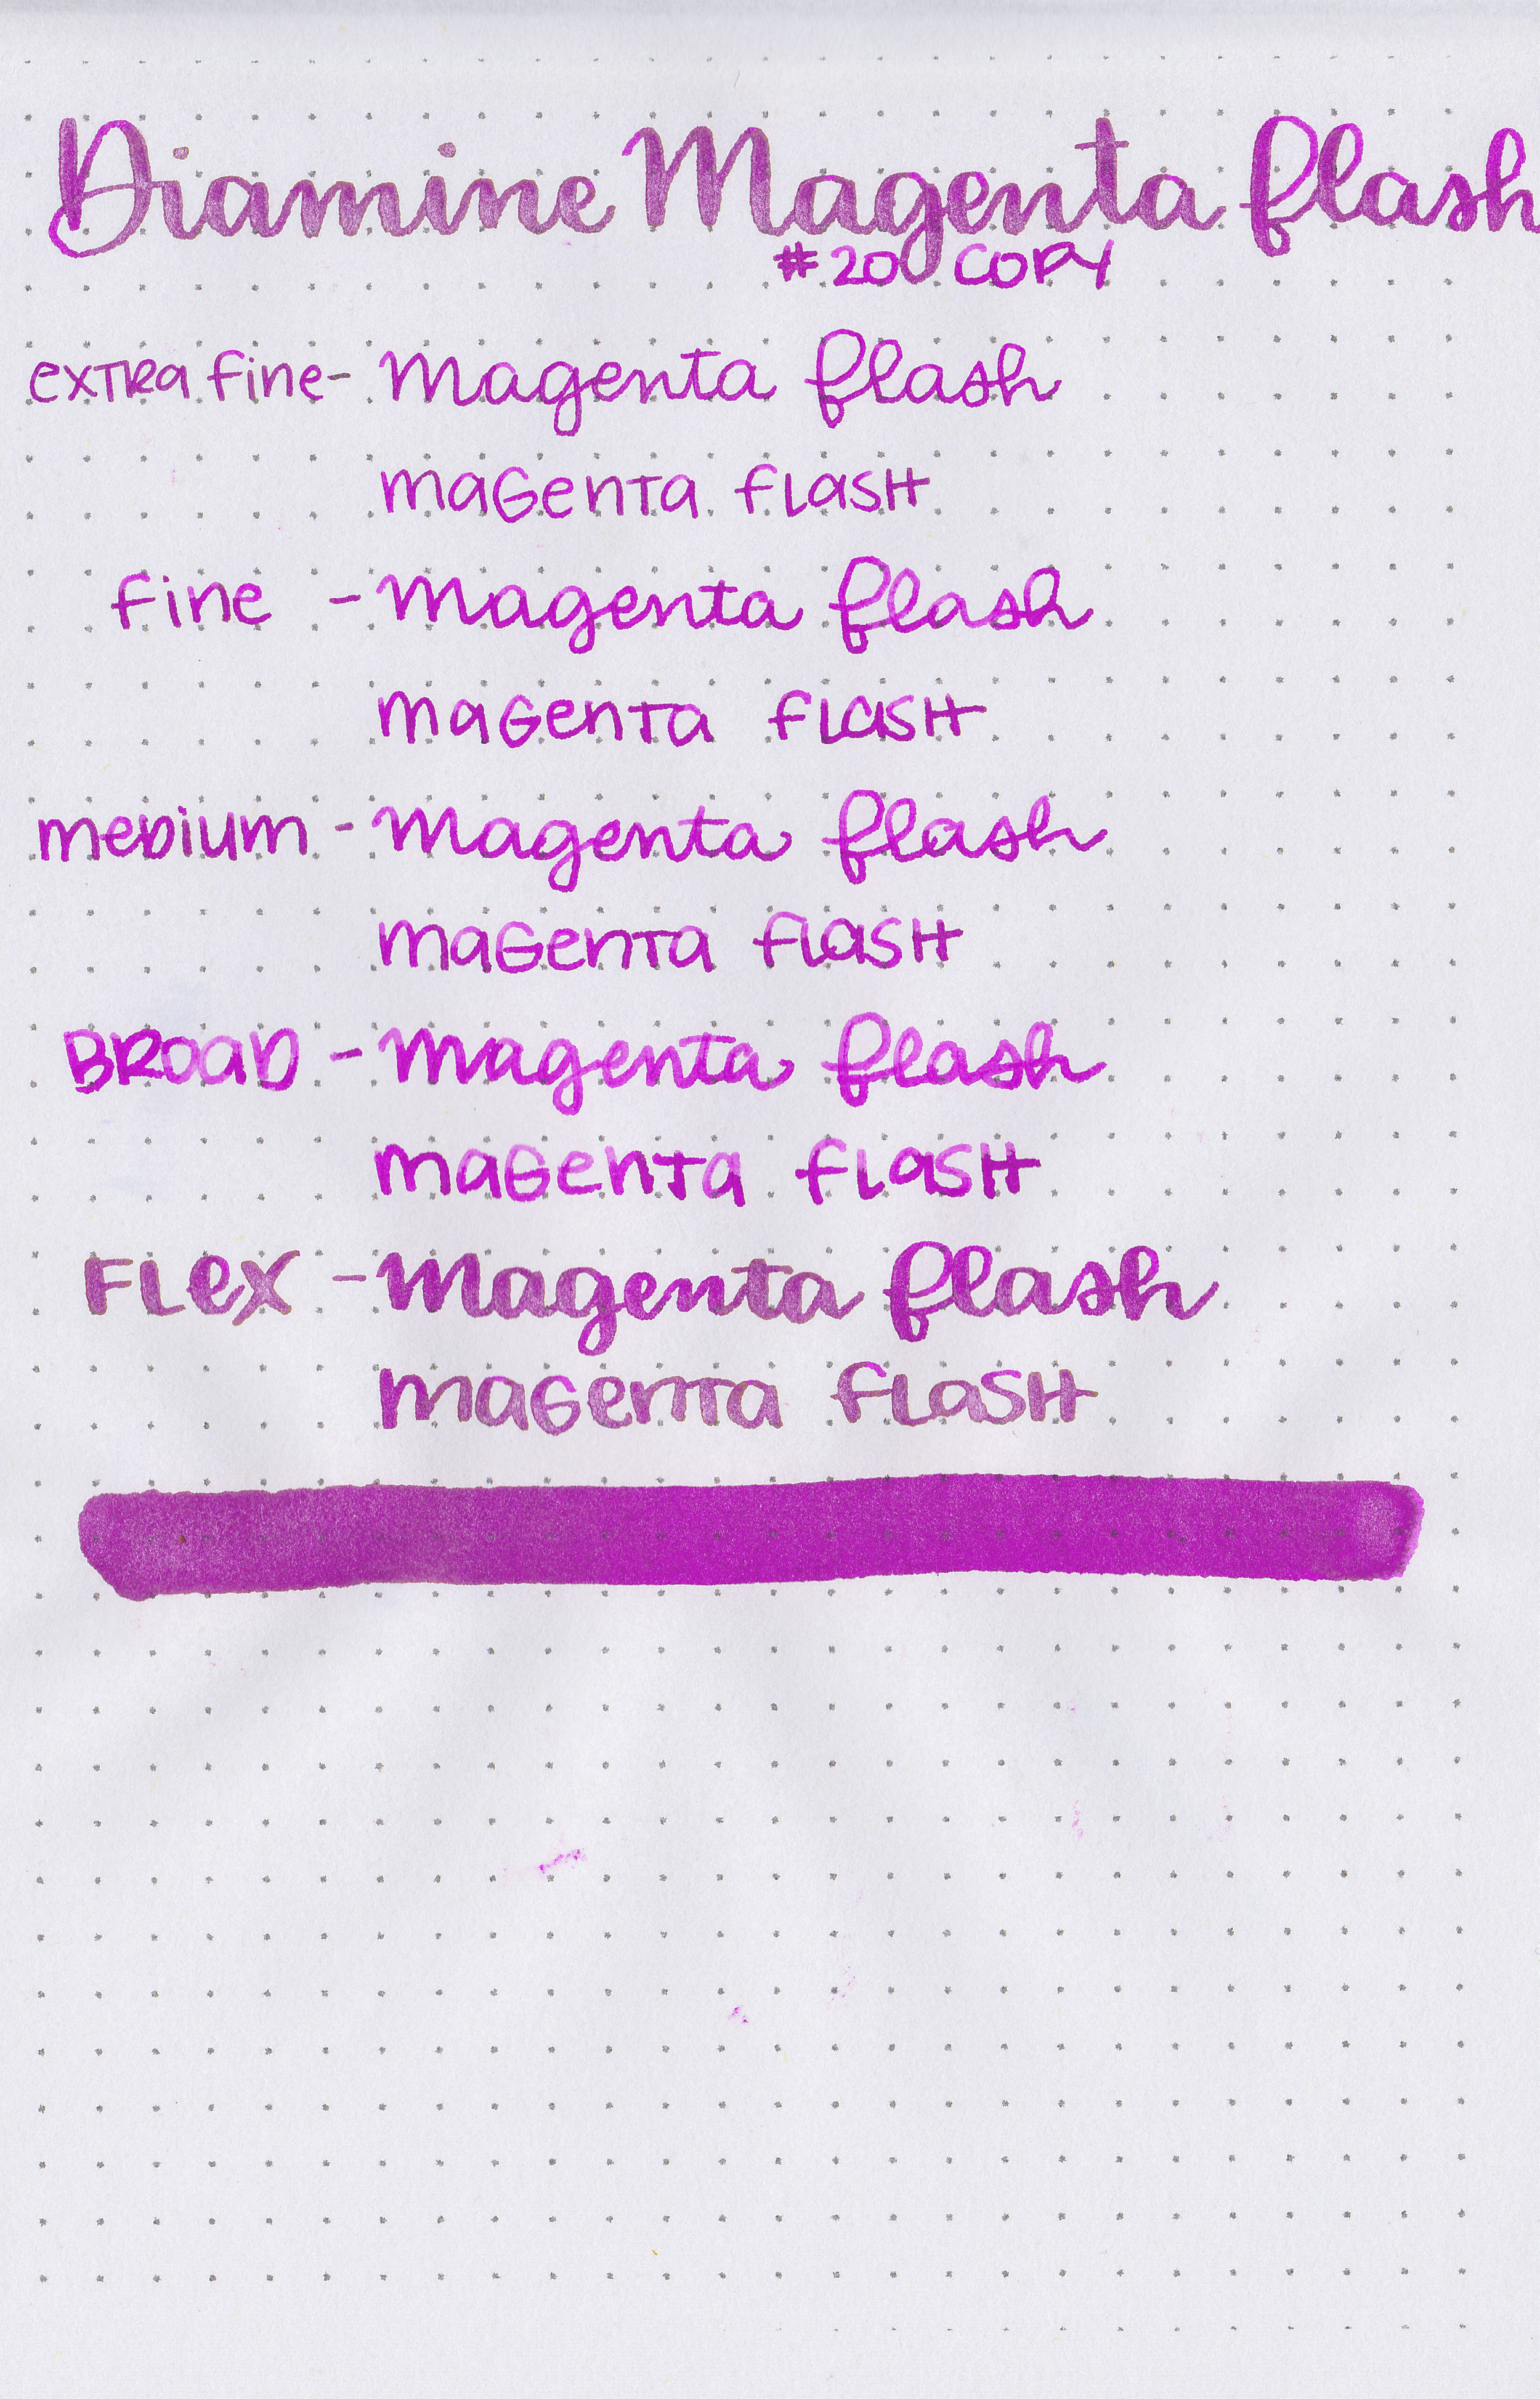 Diamine Magenta flash
#20 COPY
extra fine - Magenta flash
Magenta Flash
fine - Magenta flash
Magenta Flash
medium - Magenta flash
Magenta Flash
Broad - Magenta flash
Magenta Flash
Flex - Magenta flash
Magenta Flash